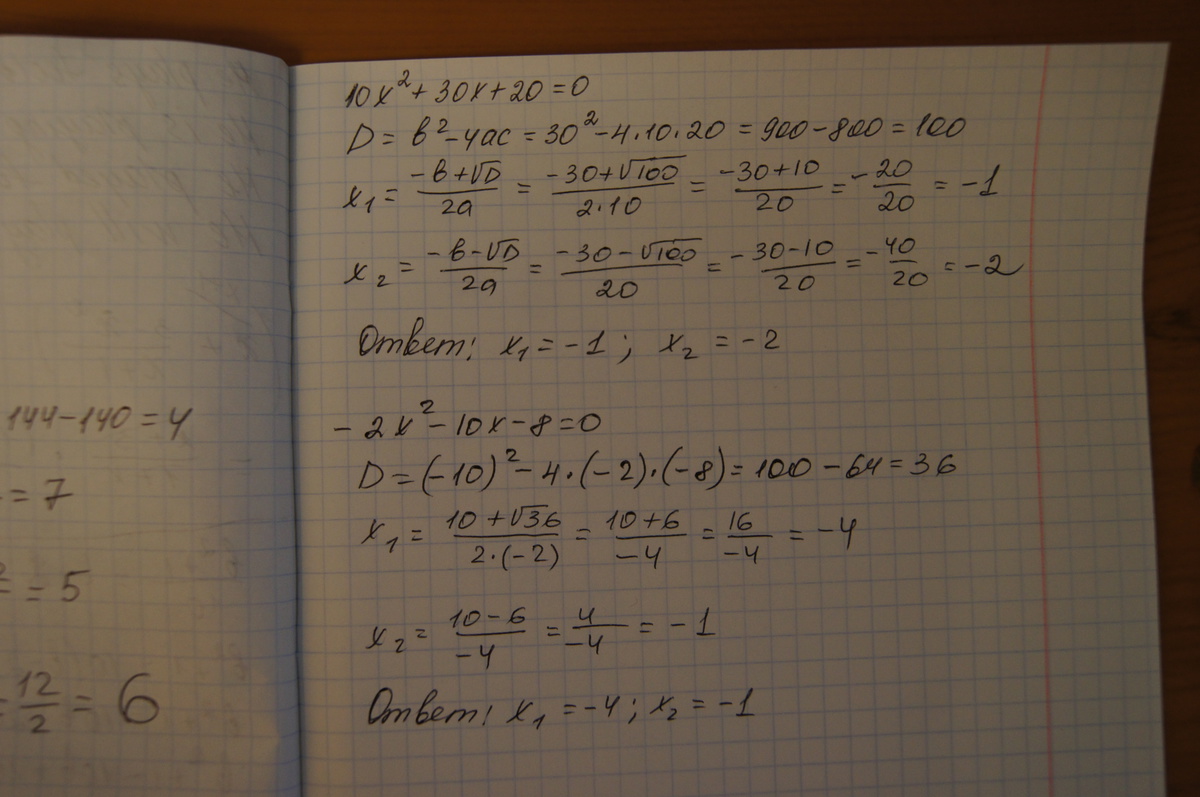 144-140=4
=7
=5
=12/2=6
10x²+30x+20=0
D=b²-4ac=30²-4·10·20=900-800=100
x₁=(-b+√D)/2a=(-30+√100)/2·10=(-30+10)/20=-20/20=-1
x₂=(-b-√D)/2a=(-30-√100)/20=(-30-10)/20=-40/20=-2
Ответ: x₁=-1; x₂=-2
-2x²-10x-8=0
D=(-10)²-4·(-2)·(-8)=100-64=36
x₁=(10+√36)/2·(-2)=(10+6)/-4=16/-4=-4
x₂=(10-6)/-4=4/-4=-1
Ответ: x₁=-4; x₂=-1